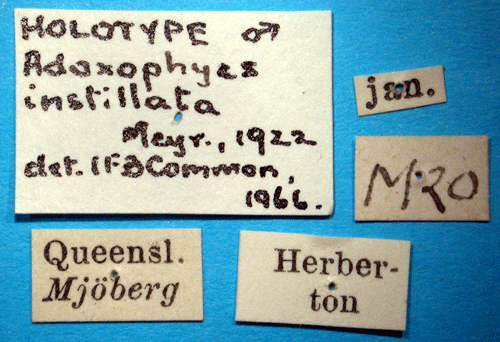 HOLOTYPE ♂
Adoxophyes
instillata
Meyr., 1922
det. IFBCommon,
1966.
jan.
M20
Queensl.
Mjöberg
Herber-
ton